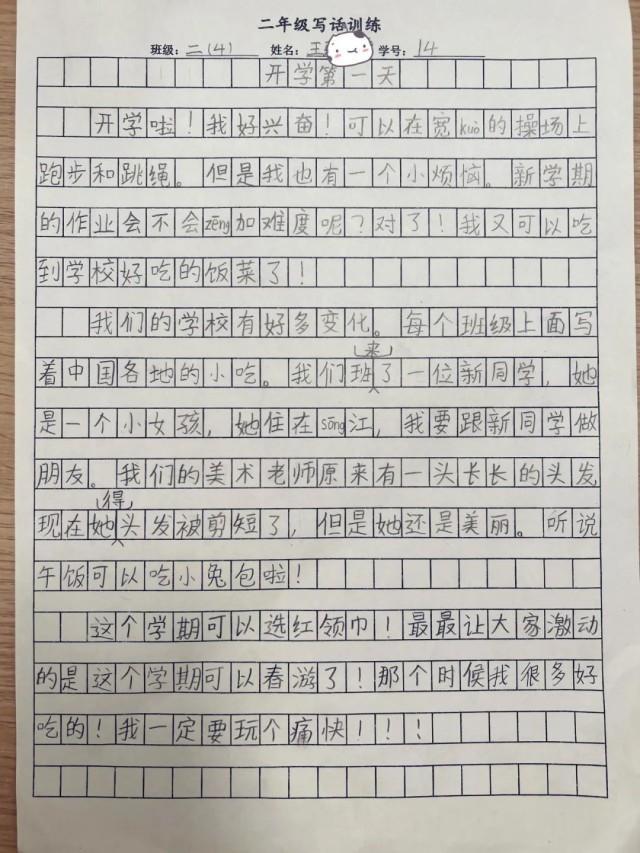 二年级写话训练
班级：二（4） 姓名：王 学号：14
开学第一天
开学啦！我好兴奋！可以在宽kuò的操场上
跑步和跳绳。但是我也有一个小烦恼。新学期
的作业会不会zēng加难度呢？对了！我又可以吃
到学校好吃的饭菜了！
我们的学校有好多变化。每个班级上面写
着中国各地的小吃。我们班来了一位新同学，她
是一个小女孩，她住在sōng江，我要跟新同学做
朋友。我们的美术老师原来有一头长长的头发
现在她得头发被剪短了，但是她还是美丽。听说
午饭可以吃小兔包啦！
这个学期可以选红领巾！最最让大家激动
的是这个学期可以春游了！那个时候我很多好
吃的！我一定要玩个痛快！！！